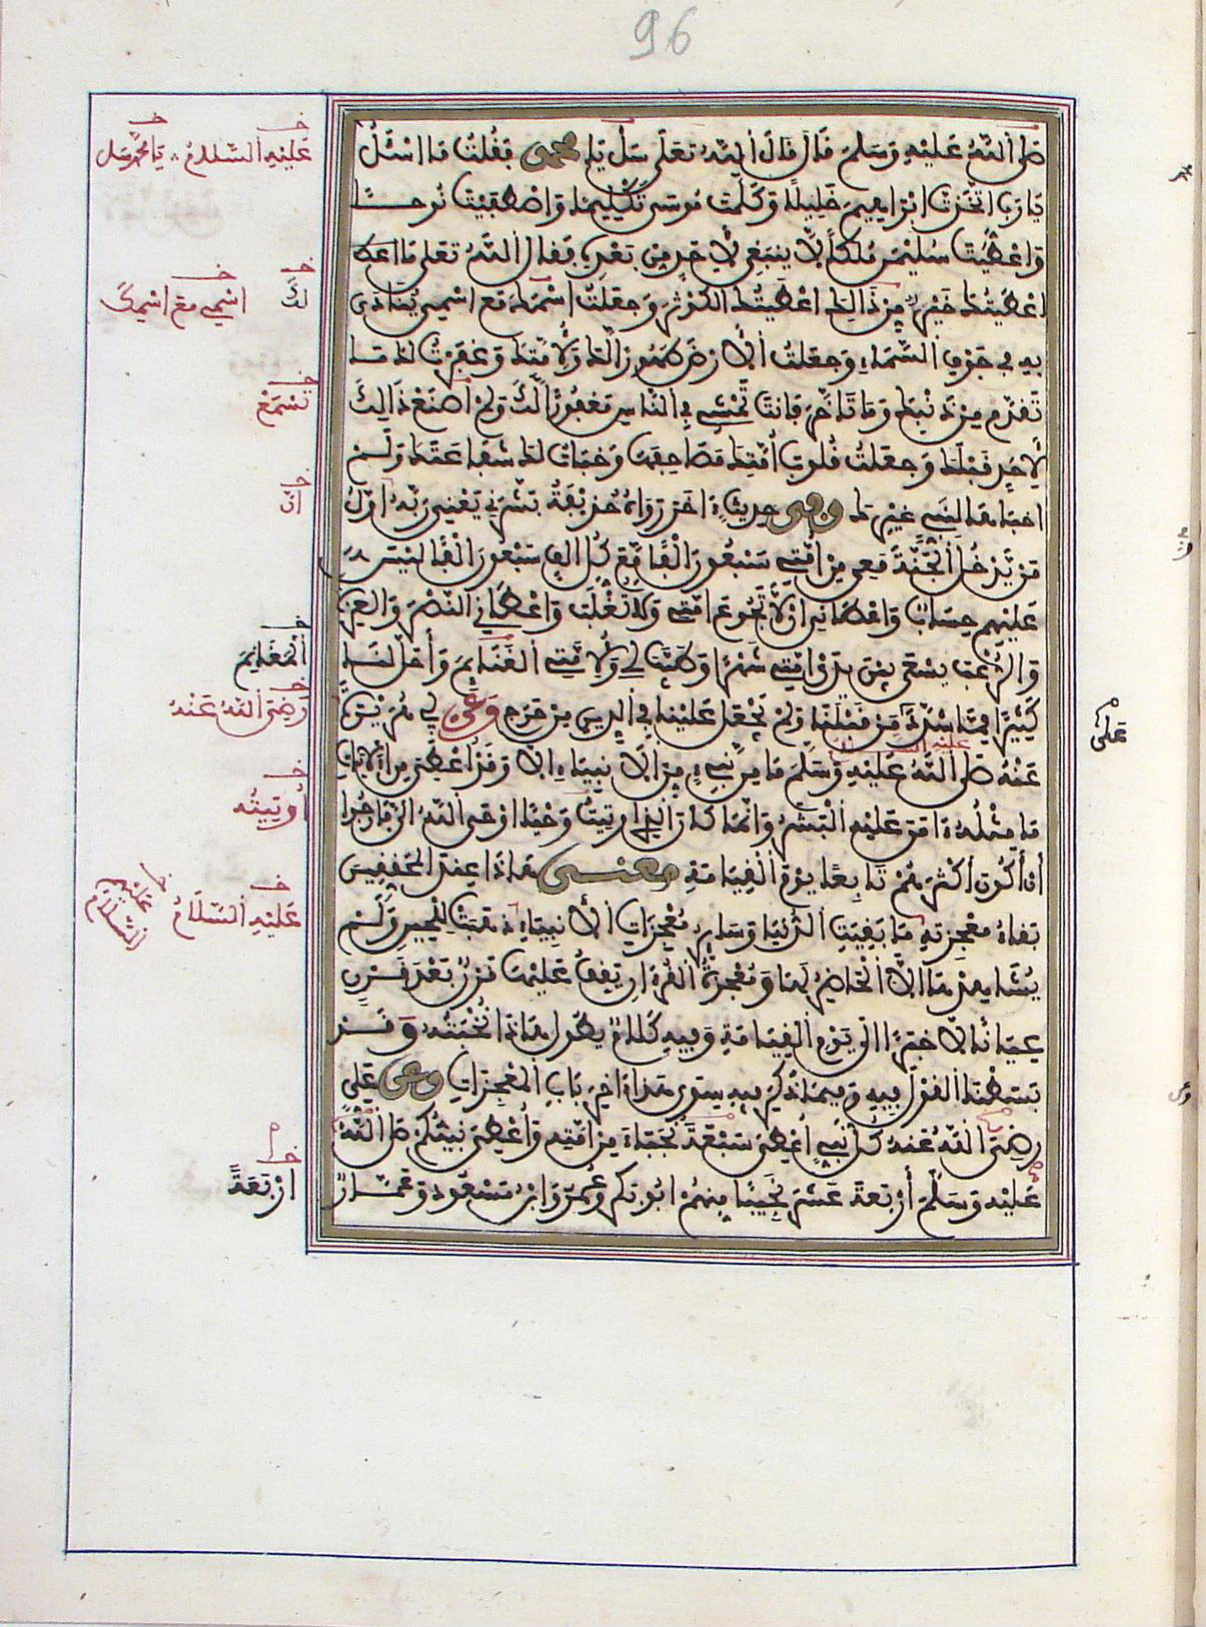 96
صَلَّى اَللَّهُ عَلَيْهِ وَسَلَّمَ قَالَ قَالَ اَللَّهُ تَعَلَى سَلْ يَا مُحَمَّدُ فَقُلْتُ مَا اسْئَلُ
يَارَبِّ اتَّخَذْتَ اِبْرَاهِيمَ خَلِيلًا وَكَلَّمْتَ مُوسَى تَكْلِيمًا وَاصْطَفَيْتَ نُوحًا
وَاعْطَيْتَ سُلَيْمَنَ مُلْكًا لَّا يَنْبَغِي لِأَحَدٍ مِنْ بَعْدِهِ فَقَالَ اَللَّهُ تَعَلَى مَا
اعْطَيْتُكَ خَيْرٌ مِنْ ذَالِكَ اعْطَيْتُكَ الْكَوْثَرَ وَجَعَلْتُ اسْمَكَ مَعَ اسْمِي يُنَادَى
بِهِ فِي جَوْفِ اَلسَّمَاءِ وَجَعَلْتُ اَلْأَرْضَ طَهُورًا لَّكَ وَلِأُمَّتِكَ وَغَفَرْتُ لَكَ مَا
تَقَدَّمَ مِنْ ذَنْبِكَ وَمَا تَأَخَّرَ فَأَنْتَ تَمْشِي فِي النَّاسِ مَغْفُورًا لَّكَ وَلَمْ أَصْنَعْ ذَالِكَ
لِأَحَدٍ قَبْلَكَ وَجَعَلْتُ قُلُوبَ أُمَّتِكَ مَصَاحِفَهَا وَخَبَأْتُ لَكَ شَفَاعَتَكَ وَلَمْ
اخْبَأْهَا لِنَبِيٍّ غَيْرِكَ وفى حديثٍ اخَرَ رَوَاهُ حُذَيْفَةُ بَشَّرَنِي يَعْنِي رَبَّهُ اوَّلُ
مَنْ يَّدْخُلُ اَلْجَنَّةَ مَعِي مِنْ أُمَّتِي سَبْعُونَ أَلْفًا مَّعَ كُلِّ أَلْفٍ سَبْعُونَ أَلْفًا لَيْسَ
عَلَيْهِمْ حِسَابٌ وَاعْطَانِي انْ لَّا تَجُوعَ امَّتِي وَلَا تُغْلَبَ وَاعْطَانِي النَّصْرَ وَالْعِزَّةَ
وَالرُّعْبَ يَسْعَى بَيْنَ يَدَيْ أُمَّتِي شَهْرًا وَطَيَّبَ لِي وَلِأُمَّتِي الْغَنَايِمَ وَأَحَلَّ لَنَا
كَثِيرًا مِمَّا شَدَّدَ عَلَى مَنْ قَبْلَنَا وَلَمْ يَجْعَلْ عَلَيْنَا فِي الدِّينِ مِنْ حَرَجٍ وَعَن أَبِي هُرَيْرَةَ
عَنْهُ صَلَّى اَللَّهُ عَلَيْهِ وَسَلَّمَ مَا مِنْ نَّبِيٍّ مِنَ الْأَنْبِيَاءِ الَّا وَقَدْ أُعْطِيَ مِنَ الْآيَاتِ
مَا مِثْلُهُ ءَامَنَ عَلَيْهِ الْبَشَرُ وَانَّمَا كَانَ الَّذِي أُوتِيتُ وَحْيًا أَوْحَى اَللَّهُ الَيَّ فَأَرْجُوا
أَنْ أَكُونَ أَكْثَرَهُمْ تَابِعًا يَوْمَ اَلْقِيَامَةِ معنى هذا عِنْدَ المُحَقِّقِينَ
بَقَاءُ مُعْجِزَتِهِ مَا بَقِيَتِ اَلدُّنْيَا وَسَايِرُ مُعْجِزَاتِ اَلْأَنْبِيَاءِ ذَهَبَتْ لِلْحِينِ وَلَمْ
يُشَاهِدْهَا الَّا اَلْحَاضِرُ لَهَا وَمُعْجِزَةُ اَلْقُرْءَانِ يَقِفُ عَلَيْهَا قَرْنٌ بَعْدَ قَرْنٍ
عِيَانًا لَا خَبَرًا الَى يَوْمِ اَلْقِيَامَةِ وَفِيهِ كَلَامٌ يَطُولُ هَذَا نُخْبَتُهُ وَقَدْ
بَسَطْنَا اَلْقَوْلَ فِيهِ وَفِيمَا ذُكِرَ فِيهِ سِوَى هَذَا ءَاخِرَ بَابِ اَلْمُعْجِزَاتِ وعن عَلِيٍّ
رَضِيَ اَللَّهُ عَنْهُ كُلُّ نَبِيٍّ أُعْطِيَ سَبْعَةَ نُجَبَاءَ مِنْ أُمَّتِهِ وَأُعْطِيَ نَبِيُّكُمْ صَلَّى اَللَّهُ
عَلَيْهِ وَسَلَّمَ أَرْبَعَةَ عَشَرَ نَجِيبًا مِنْهُمْ ابُو بَكْرٍ وَعُمَرُ وَابْنُ مَسْعُودٍ وَعَمَّارٌ
عَلَيْهِ اَلسَّلَامُ يَا مُحَمَّدُ سَل
لَكَ
اسْمِي مَعَ اسْمِكَ
تَسْمَعْ
انَّ
اَلْمَغَانِمَ
رَضِيَ اَللَّهُ عَنْهُ
عَلَى
أُوتِيتُهُ
عَلَيْهِ اَلسَّلَامُ
عَلَيْهِمُ السَّلَامُ
أَرْبَعَةً